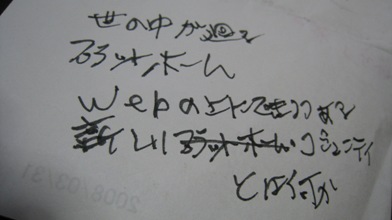 世の中が廻る
プラットホーム
Webの上にできつつある
新しいプラットホームコミュニティ
とは何か
2008/03/31